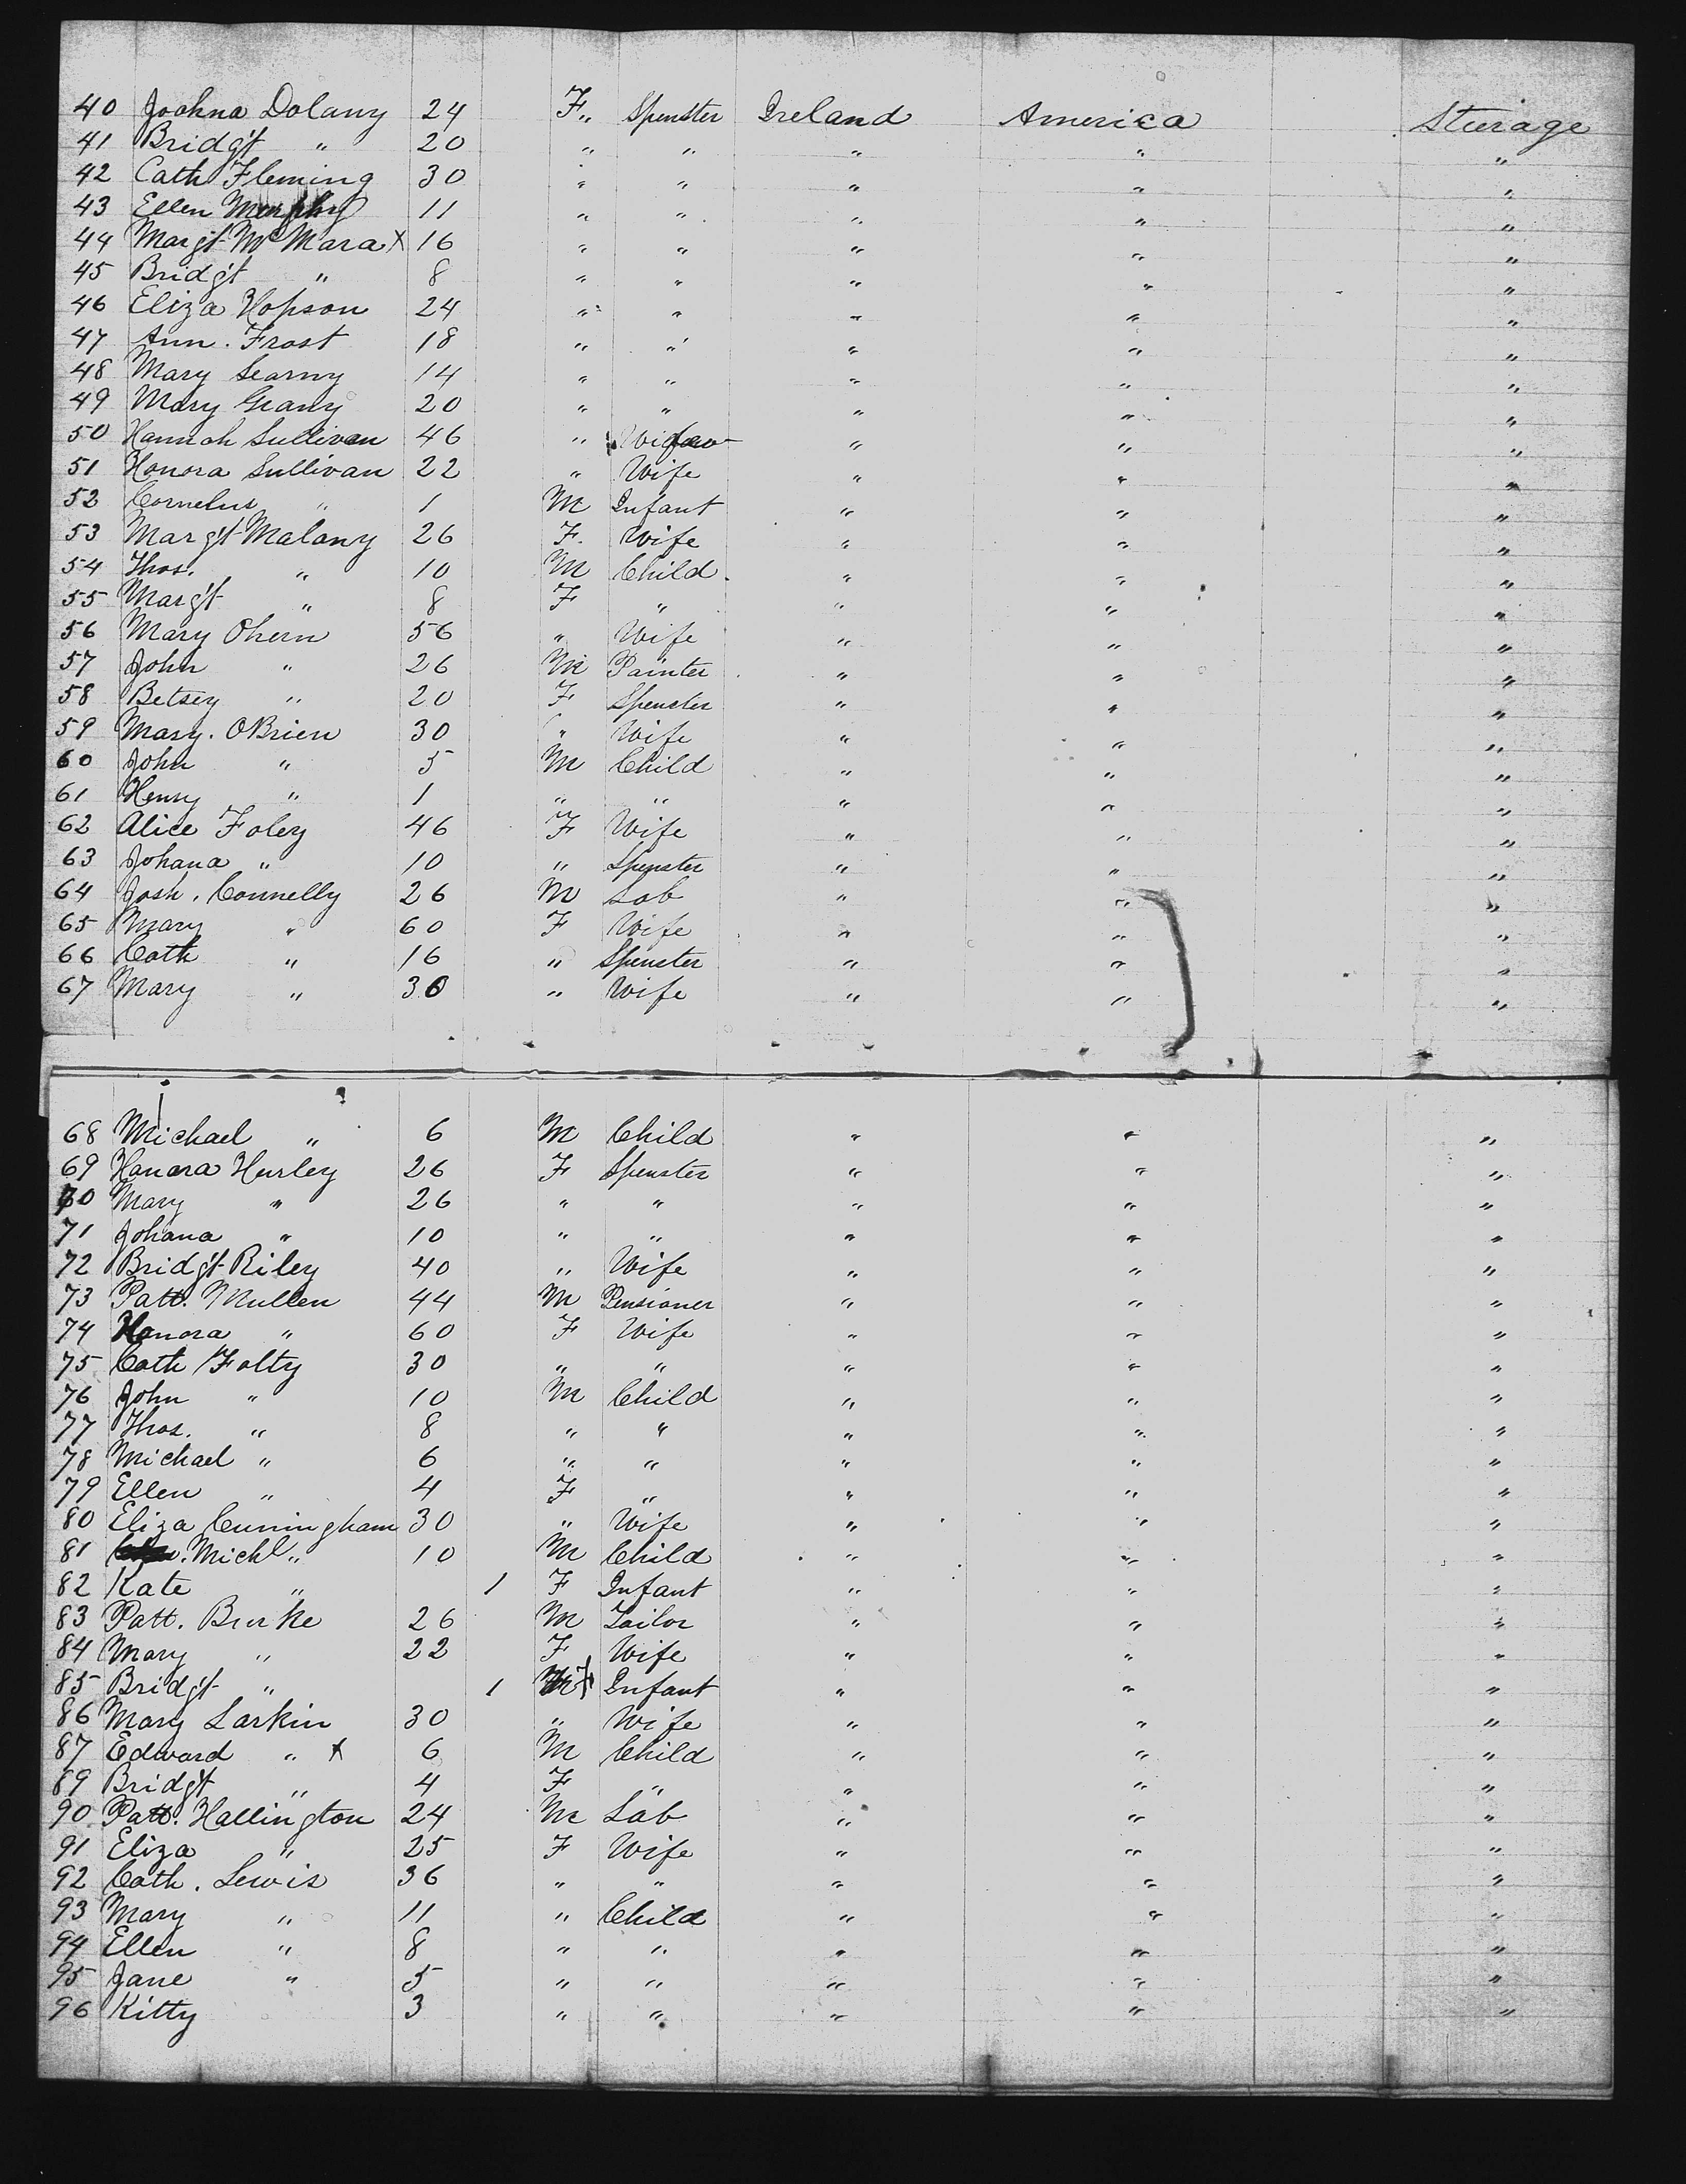 40 Joahna Dolany 24 F „ Spenster Ireland America Sturage
41 Bridgt " 20 " " " " "
42 Cath Fleming 30 " " " " "
43 Ellen Murphy 11 " " " " "
44 Margt McMara X 16 " " " " "
45 Bridgt " 8 " " " " "
46 Eliza Hopson 24 " " " " "
47 Ann. Frost 18 " " " " "
48 Mary Searny 14 " " " " "
49 Mary Grany 20 " " " " "
50 Hannah Sullivan 46 " Widow " " "
51 Honora Sullivan 22 " Wife " " "
52 Cornelus " 1 M Infant " " "
53 Margt Malany 26 F. Wife " " "
54 Thos. " 10 M Child " " "
55 Margt " 8 F " " " "
56 Mary Ohern 56 " Wife " " "
57 John " 26 M Painter " " "
58 Betsey " 20 F Spenster " " "
59 Mary. OBrien 30 " Wife " " "
60 John " 5 M Child " " "
61 Henry " 1 " " " " "
62 Alice Foley 46 F Wife " " "
63 Johana " 10 " Spenster " " "
64 Josh. Connelly 26 M Lab " " "
65 Mary " 60 F Wife " " "
66 Cath " 16 " Spenster " " "
67 Mary " 30 " Wife " " "
68 Michael " 6 M Child " " "
69 Hanora Hurley 26 F Spenster " " "
70 Mary " 26 " " " " "
71 Johana " 10 " " " " "
72 Bridgt Riley 40 " Wife " " "
73 Patt. Mullen 44 M Pensioner " " "
74 Honora " 60 F Wife " " "
75 Cath Folty 30 " " " " "
76 John " 10 M Child " " "
77 Thos. " 8 " " " " "
78 Michael " 6 " " " " "
79 Ellen " 4 F " " " "
80 Eliza Cuningham 30 " Wife " " "
81 Michl " 10 M Child " " "
82 Kate " 1 F Infant " " "
83 Patt. Burke 26 M Tailor " " "
84 Mary " 22 F Wife " " "
85 Bridgt " 1 F Infant " " "
86 Mary Larkin 30 " Wife " " "
87 Edward " X 6 M Child " " "
89 Bridgt " 4 F " " " "
90 Patt. Hallington 24 M Lab " " "
91 Eliza " 25 F Wife " " "
92 Cath. Lewis 36 " " " " "
93 Mary " 11 " Child " " "
94 Ellen " 8 " " " " "
95 Jane " 5 " " " " "
96 Kitty 3 " " " " "